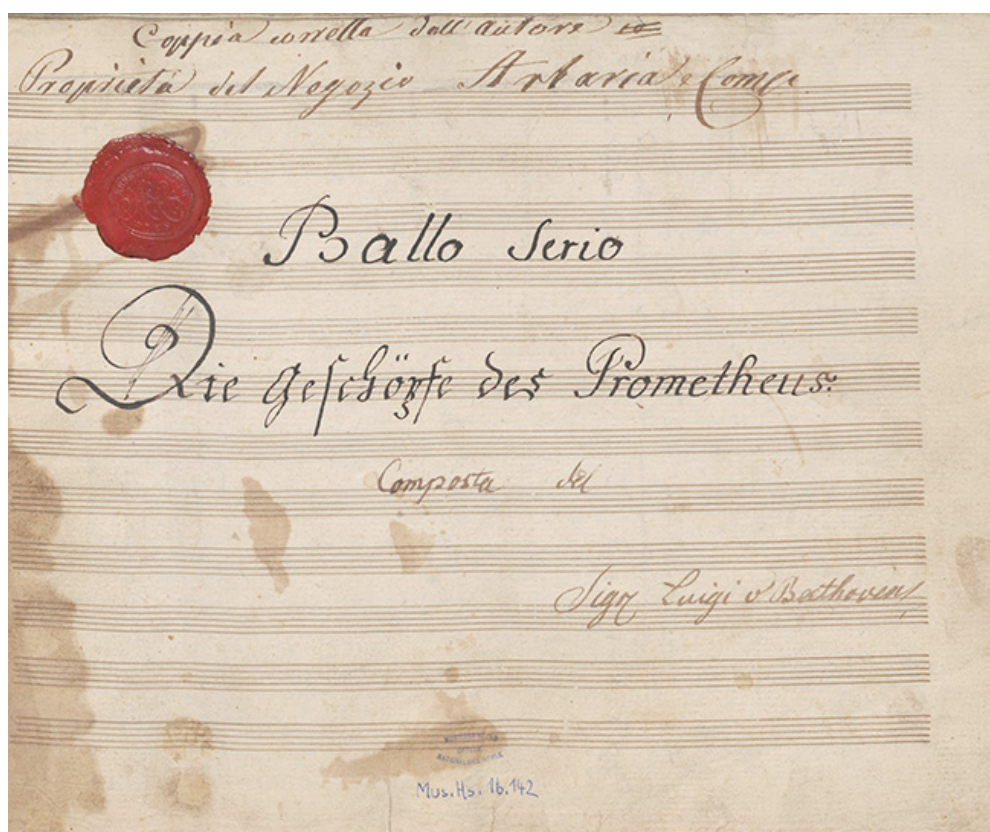 Coppia corretta dall'autore
Proprietà del Negozio Artaria e Comp.
Ballo Serio
Die Geschöpfe des Prometheus.
Composta del
Sigr Luigi v Beethoven
Mus.Hs. 16.142